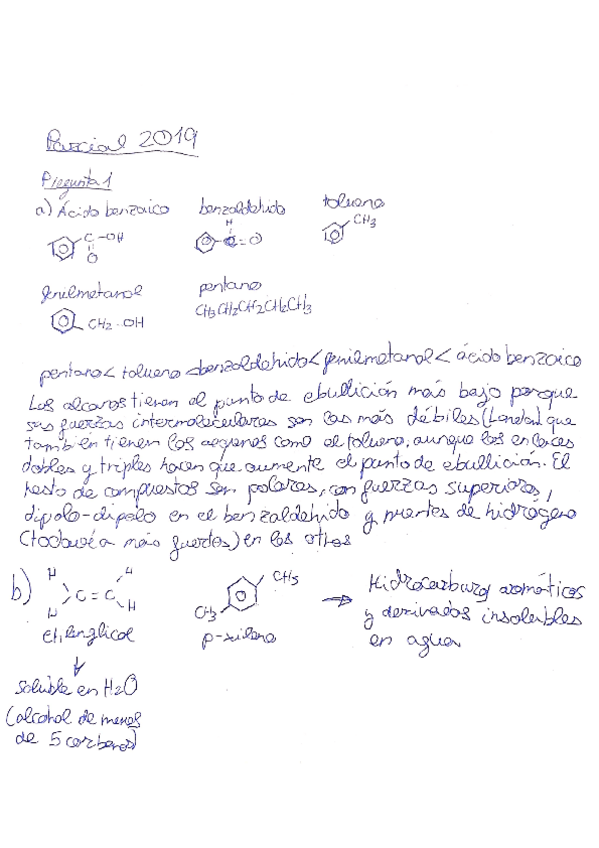 Parcial 2019
Pregunta 1
a) Ácido benzoico benzaldehido tolueno
C-OH
O
H
C=O
CH3
fenilmetanol pentano
CH2-OH CH3CH2CH2CH2CH3
pentano < tolueno < benzaldehido < fenilmetanol < ácido benzoico
Los alcanos tienen el punto de ebullición más bajo porque
sus fuerzas intermoleculares son las más débiles (London) que
también tienen los arquenos como el tolueno, aunque los enlaces
dobles y triples hacen que aumente el punto de ebullición. El
resto de compuestos son polares, con fuerzas superiores,
dipolo-dipolo en el benzaldehido y puentes de hidrógeno
(todavía más fuertes) en los otros
b) H H
C=C
H H
CH3
CH3
→ Hidrocarburos aromáticos
y derivados insolubles
en agua
etilenglicol p-xileno
soluble en H2O
(alcohol de menos
de 5 carbonos)